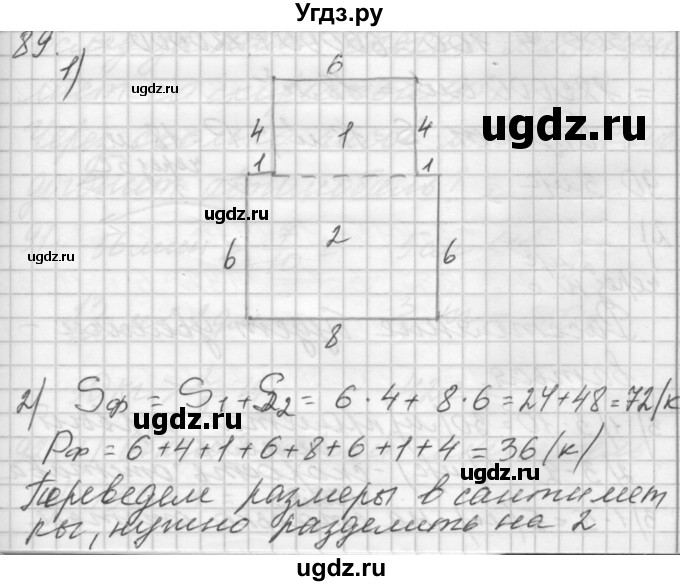 Угдз.ру
89.
1)
6
4 1 4
1 1
ugdz.ru
ugdz.ru
ugdz.ru
ugdz.ru
6 2 6
8
2) Sф = S1 + S2 = 6·4 + 8·6 = 24+48 = 72 (к
ugdz.ru
Pф = 6+4+1+6+8+6+1+4 = 36 (к)
Переведем размеры в сантимет
ugdz.ru
ugdz.ru
ры, нужно разделить на 2
ugdz.ru